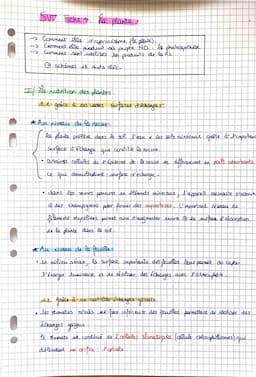 SVT Fiche : La plante
→ Comment elle s'approvisionne (la plante).
→ Comment elle produit sa propre MO : la photosynthèse
→ Comment sont utilisés les produits de la
schémas et mots clés.
I/ La nutrition des plantes
grâce à ses vastes surfaces d'échanges
★ Au niveau de la racine :
• la plante prélève dans le sol l'eau et les sels minéraux grâce à l'importante
surface d'échange que constitue la racine.
• certaines cellules de l'épiderme de la racine se différencient en poils absorbants
ce qui démultiplient surface d'échange.
• dans les zones pauvres en éléments minéraux, l'appareil racinaire s'associe
à des champignons pour former des mycorhizes. L'important réseau de
filaments mycéliens permet ainsi d'augmenter encore la surface d'absorption
de la plante dans le sol.
★ Au niveau de la feuille :
• en milieu aérien, la surface importante des feuilles leur permet de capter
l'énergie lumineuse et de réaliser des échanges avec l'atmosphère.
grâce à ses échanges gazeux
• les stomates situés sur face inférieure des feuilles permettent de réaliser des
échanges gazeux
le stomate est constitué de 2 cellules stomatiques (cellules chlorophylliennes) qui
délimitent un orifice : l'ostiole.